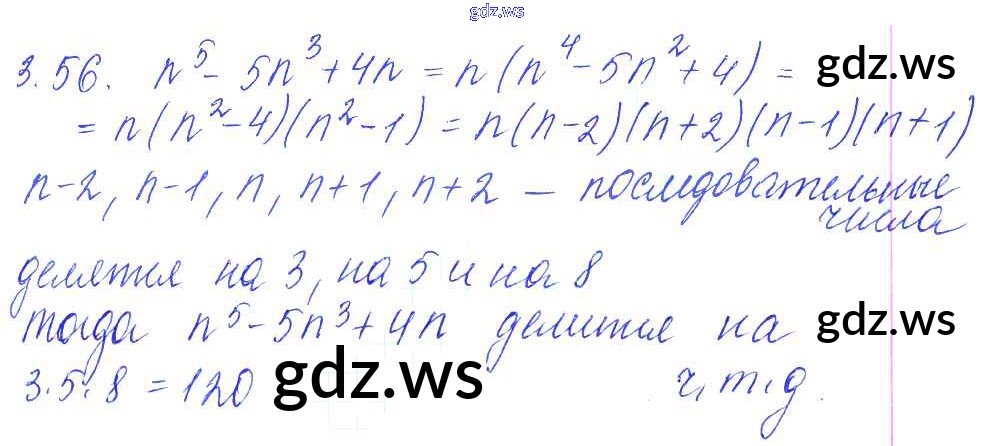 gdz.ws
3.56. n⁵ - 5n³ + 4n = n(n⁴ - 5n² + 4) = gdz.ws
= n(n² - 4)(n² - 1) = n(n-2)(n+2)(n-1)(n+1)
n-2, n-1, n, n+1, n+2 — последовательные
числа
делятся на 3, на 5 и на 8
тогда n⁵ - 5n³ + 4n делится на gdz.ws
3·5·8 = 120 gdz.ws ч.т.д.